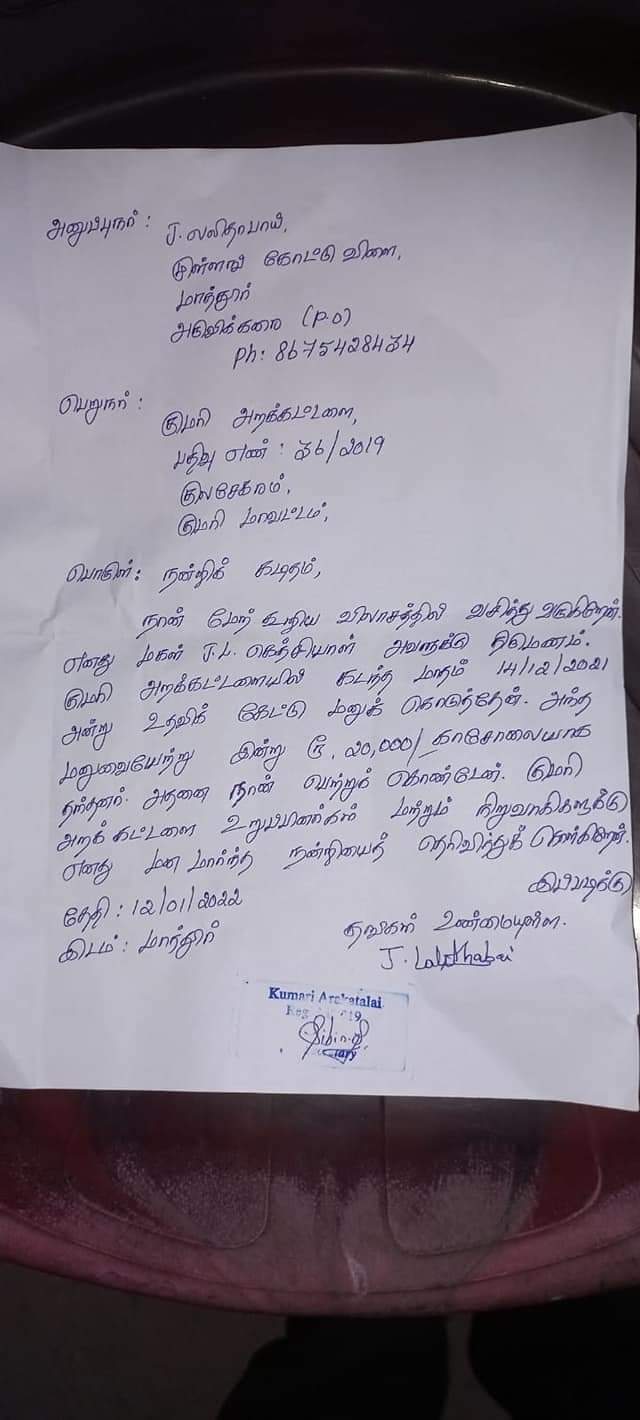 அனுப்புநர் : J. லலிதாபாய்,
முள்ளங் கோட்டு விளை,
மாத்தூர்
அருவிக்கரை (P.O)
Ph: 8675428434
பெறுநர் :
குமரி அறக்கட்டளை,
பதிவு எண் : 36/2019
குலசேகரம்,
குமரி மாவட்டம்,
பொருள் : நன்றிக் கடிதம்,
நான் மேற் கூறிய விலாசத்தில் வசித்து வருகிறேன்.
எனது மகள் J.L. அவளுக்கு திருமணம்.
குமரி அறக்கட்டளையில் கடந்த மாதம் 14/12/2021
அன்று உதவிக் கேட்டு மனுக் கொடுத்தேன். அந்த
மனுவையேற்று இன்று ரூ. 20,000/ காசோலையாக
தந்தனர். அதனை நான் பெற்றுக் கொண்டேன். குமரி
அறக் கட்டளை உறுப்பினர்கள் மற்றும் நிறுவாகிகளுக்கு
எனது மன மார்ந்த நன்றியைத் தெரிவித்துக் கொள்கிறேன்.
இப்படிக்கு
தேதி : 12/01/2022
தங்கள் உண்மையுள்ள.
இடம் : மாத்தூர்
J. Lalithabai
Kumari Arakatalai
Reg 19